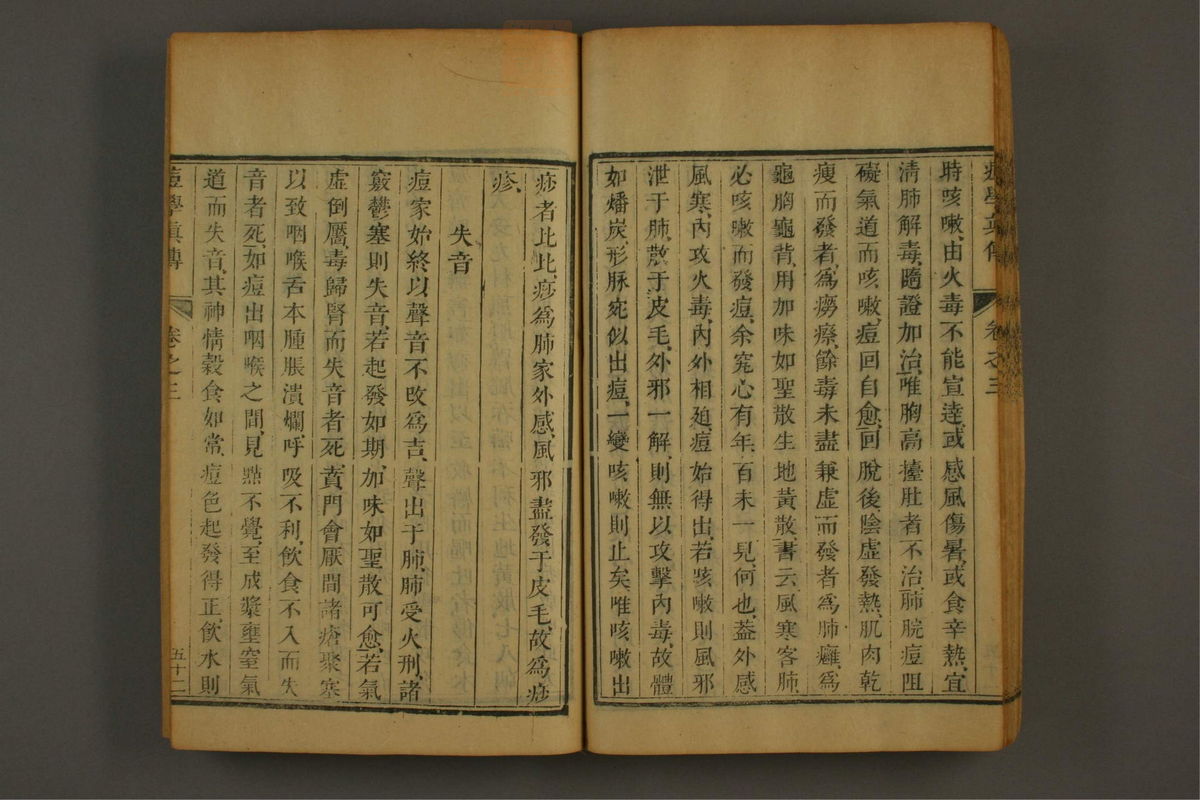 痘學真傳 卷之三
時咳嗽、由火毒不能宣達、或感風傷暑、或食辛熱、宜
清肺解毒、隨證加治、唯胸高擡肚者不治、肺脘痘阻
礙氣道而咳嗽、痘回自愈、回脫後陰虛發熱、肌肉乾
瘦而發者為癆瘵、餘毒未盡兼虛而發者為肺癰、為
龜胸龜背、用加味如聖散生地黃散、書云風寒客肺
必咳嗽而發痘、余究心有年、百未一見、何也、蓋外感
風寒、內攻火毒、內外相廹、痘始得出、若咳嗽則風邪
泄于肺、散于皮毛、外邪一解、則無以攻擊內毒、故體
如燔炭、形脉宛似出痘、一變咳嗽則止矣、唯咳嗽出
痧者比比、痧為肺家外感、風邪盡發于皮毛、故為痧
疹、
失音
痘家始終以聲音不改為吉、聲出于肺、肺受火刑、諸
竅鬱塞則失音、若起發如期、加味如聖散可愈、若氣
虛倒靨、毒歸腎而失音者死、賁門會厭間諸瘡聚塞
以致咽喉舌本腫脹潰爛、呼吸不利、飲食不入而失
音者死、如痘出咽喉之間、見點不覺、至成漿壅窒氣
道而失音、其神情穀食如常、痘色起發得正、飲水則
痘學真傳 卷之三 五十二